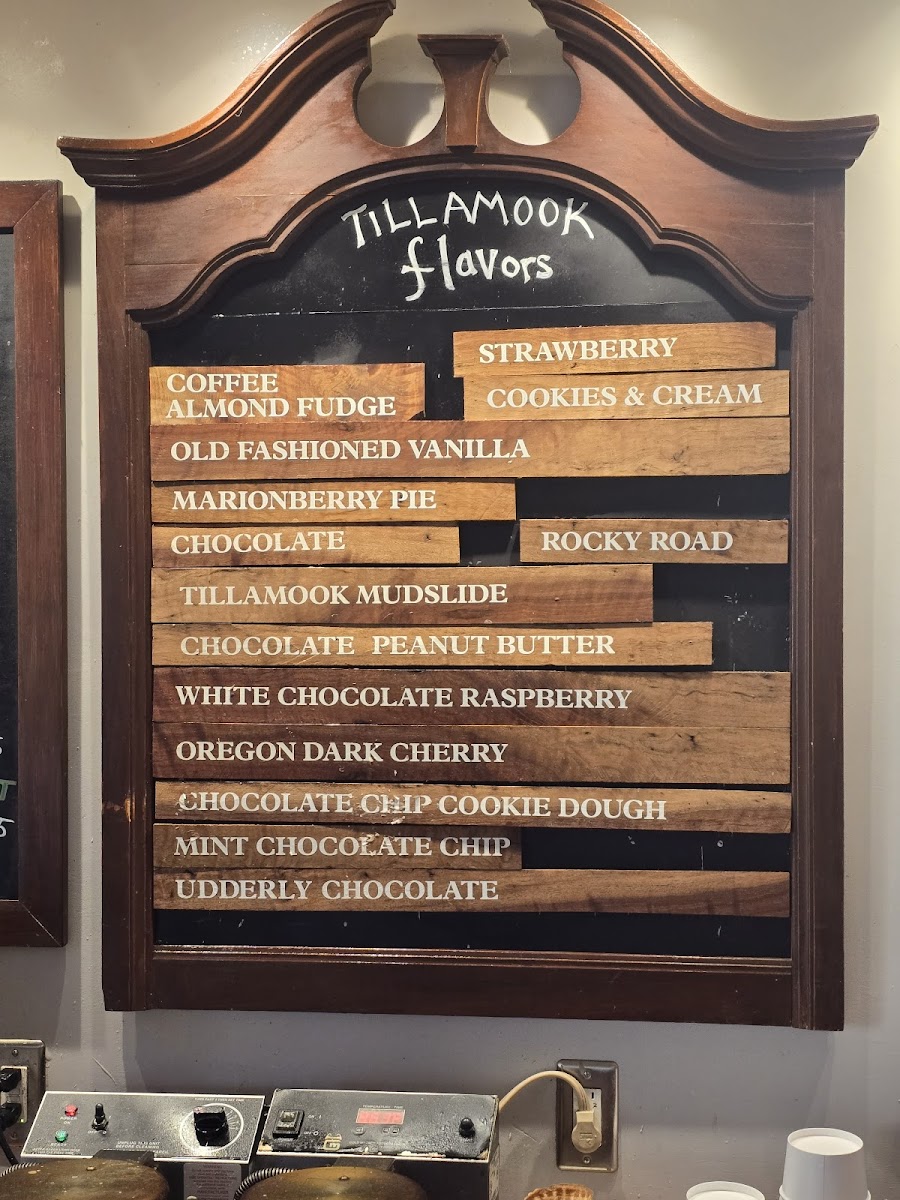 TILLAMOOK
flavors
STRAWBERRY
COFFEE
ALMOND FUDGE
COOKIES & CREAM
OLD FASHIONED VANILLA
MARIONBERRY PIE
CHOCOLATE
ROCKY ROAD
TILLAMOOK MUDSLIDE
CHOCOLATE PEANUT BUTTER
WHITE CHOCOLATE RASPBERRY
OREGON DARK CHERRY
CHOCOLATE CHIP COOKIE DOUGH
MINT CHOCOLATE CHIP
UDDERLY CHOCOLATE